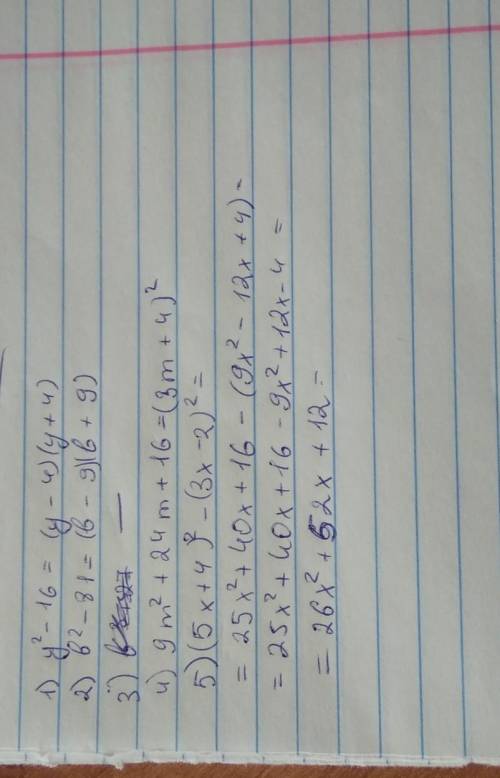 1) y² - 16 = (y - 4)(y + 4)
2) b² - 81 = (b - 9)(b + 9)
3) —
4) 9m² + 24m + 16 = (3m + 4)²
5) (5x + 4)² - (3x - 2)² =
= 25x² + 40x + 16 - (9x² - 12x + 4) =
= 25x² + 40x + 16 - 9x² + 12x - 4 =
= 26x² + 52x + 12 =